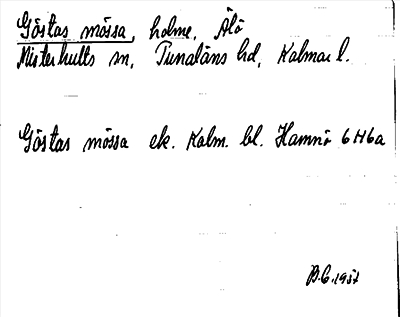 Göstas mössa, holme, Älö
Misterhults sn, Tunaläns hd, Kalmar l.
Göstas mössa ek. Kalm. bl. Hamnö 6H6a
B.C. 1957